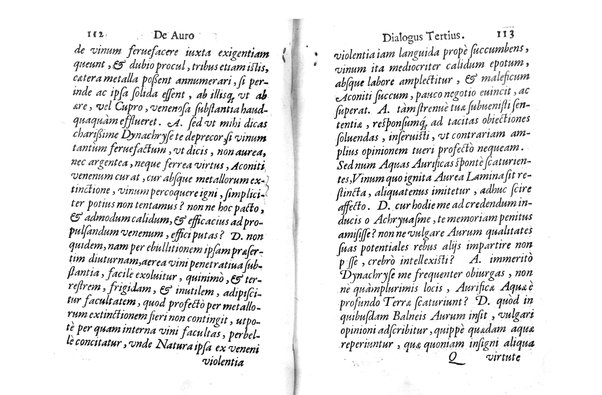 112 De Auro
de vinum feruefacere iuxta exigentiam
queunt, & dubio procul, tribus etiam istis,
cætera metalla possent annumerari, si per-
inde ac ipsa solida essent, ab illisq, vt ab
ære, vel Cupro, venenosa substantia haud-
quaquàm efflueret. A. sed vt mihi dicas
charissime Dynachryse te deprecor si vinum
tantum feruefactum, vt dicis, non aurea,
nec argentea, neque ferrea virtus, Aconiti
venenum curat, cur absque metallorum ex-
tinctione, vinum percoquere igni, simplici-
ter potius non tentamus? non ne hoc pacto,
& admodum calidum, & efficacius ad pro-
pulsandum venenum, effici putas? D. non
quidem, nam per ebullitionem ipsam præser-
tim diuturnam, aerea vini penetratiua sub-
stantia, facile exoluitur, quinimò, & ter-
restrem, frigidam, & inutilem, adipisci-
tur facultatem, quod profectò per metallo-
rum extinctionem fieri non contingit, vtpo-
tè per quam interna vini facultas, perbel-
lè concitatur, vnde Natura ipsa ex veneni
violentia
Dialogus Tertius. 113
violentia iam languida propè succumbens,
vinum ita mediocriter calidum epotum,
absque labore amplectitur, & maleficum
Aconiti succum, pauco negotio euincit, ac
superat. A. tàm strenuè tua subuenisti sen-
tentiæ, responsumq, ad tacitas obiectiones
soluendas, inseruisti, vt contrariam am-
plius opinionem tueri profectò nequeam.
Sed num Aquas Aurificas spontè scaturien-
tes, Vinum quo ignita Aurea Lamina sit re-
stincta, aliquatenus imitetur, adhuc scire
affecto. D. cur hodie me ad credendum in-
ducis o Achryasme, te memoriam penitus
amisisse? non ne vulgare Aurum qualitates
suas potentiales rebus alijs impartire non
posse, crebrò intellexisti? A. immeritò
Dynachryse me frequenter obiurgas, non
nè quàmplurimis locis, Aurificæ Aquæ è
profundo Terræ scaturiunt? D. quòd in
quibusdam Balneis Aurum insit, vulgari
opinioni adscribitur, quippè quædam aquæ
reperiuntur, quæ quoniam insigni aliqua
Q virtute